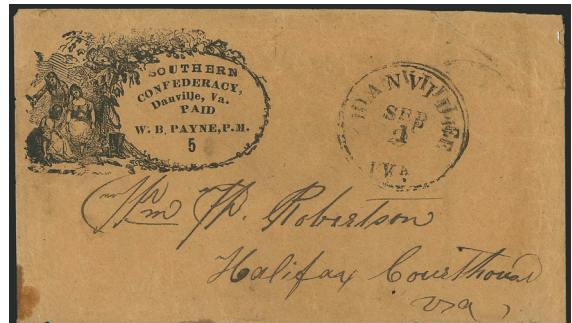 SOUTHERN
CONFEDERACY,
Danville, Va.
PAID
W. B. PAYNE, P.M.
5
DANVILLE
SEP
4
VA.
Wm P. Robertson
Halifax Courthouse
Va,